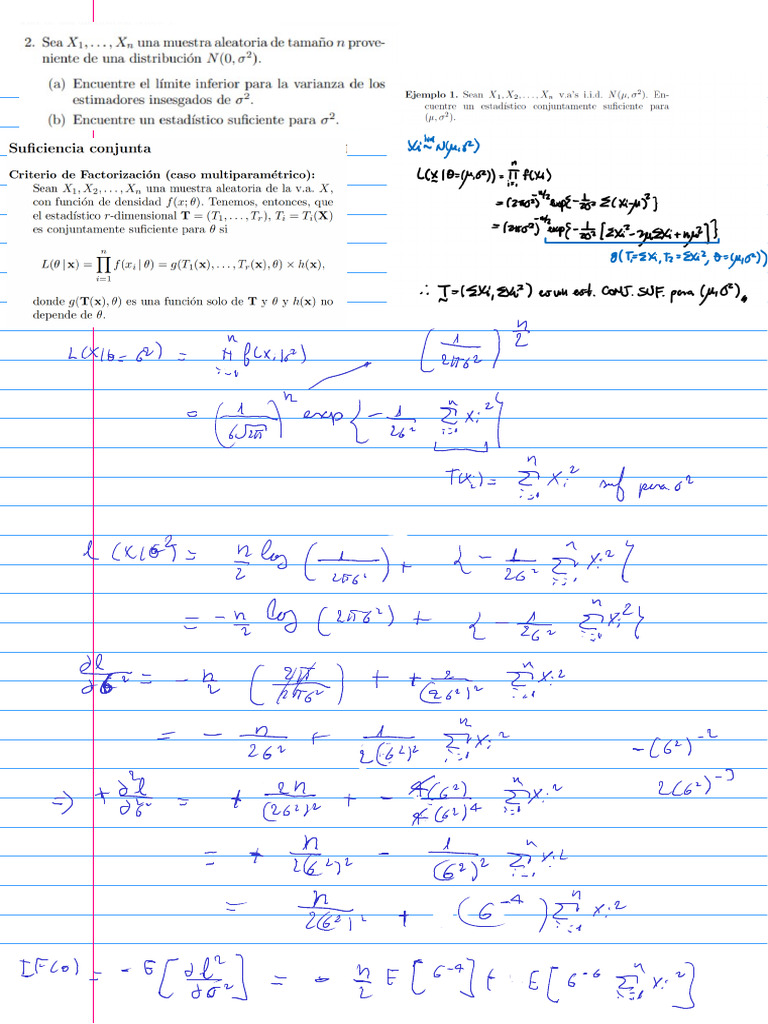 2. Sea X₁, . . . , Xₙ una muestra aleatoria de tamaño n prove-
niente de una distribución N(0, σ²).
(a) Encuentre el límite inferior para la varianza de los
estimadores insesgados de σ².
(b) Encuentre un estadístico suficiente para σ².
Suficiencia conjunta
Criterio de Factorización (caso multiparamétrico):
Sean X₁, X₂, . . . , Xₙ una muestra aleatoria de la v.a. X,
con función de densidad f(x; θ). Tenemos, entonces, que
el estadístico r-dimensional T = (T₁, . . . , Tᵣ), Tᵢ = Tᵢ(X)
es conjuntamente suficiente para θ si
L(θ | x) = ∏ᵢ₌₁ⁿ f(xᵢ | θ) = g(T₁(x), . . . , Tᵣ(x), θ) × h(x),
donde g(T(x), θ) es una función solo de T y θ y h(x) no
depende de θ.
Ejemplo 1. Sean X₁, X₂, . . . , Xₙ v.a's i.i.d. N(μ, σ²). En-
cuentre un estadístico conjuntamente suficiente para
(μ, σ²).
Xi iid~ N(μ,σ²)
L(X | θ=(μ,σ²)) = ∏ᵢ₌₁ⁿ f(xi)
= (2πσ²)^-n/2 exp{-1/2σ² Σ(xi-μ)²}
= (2πσ²)^-n/2 exp{-1/2σ² [Σxi² - 2μΣxi + nμ²]}
g(T₁=Σxi, T₂=Σxi², θ=(μ,σ²))
∴ T=(Σxi, Σxi²) es un est. CONJ. SUF. para (μ,σ²).
L(X|θ=σ²) = ∏ᵢ₌₁ⁿ f(xᵢ|σ²) (1/2πσ²)^n/2
= (1/σ√2π)^n exp{-1/2σ² Σᵢ₌₁ⁿ xᵢ²}
T(xᵢ) = Σᵢ₌₁ⁿ xᵢ² suf para σ²
l(X|σ²) = n/2 log(1/2πσ²) + {-1/2σ² Σᵢ₌₁ⁿ xᵢ²}
= -n/2 log(2πσ²) + {-1/2σ² Σᵢ₌₁ⁿ xᵢ²}
∂l/∂σ² = -n/2 (2π/2πσ²) + +2/(2σ²)² Σᵢ₌₁ⁿ xᵢ²
= -n/2σ² + 1/2(σ²)² Σᵢ₌₁ⁿ xᵢ² -(σ²)⁻²
⇒ +∂²l/∂σ² = +2n/(2σ²)² + -4(σ²)/4(σ²)⁴ Σᵢ₌₁ⁿ xᵢ² 2(σ²)⁻³
= + n/2(σ²)² - 1/(σ²)² Σᵢ₌₁ⁿ xᵢ²
= n/2(σ²)² + (σ⁻⁴) Σᵢ₌₁ⁿ xᵢ²
IF(θ) = -E[∂l²/∂σ²] = -n/2 E[σ⁻⁴] + E[σ⁻⁶ Σᵢ₌₁ⁿ xᵢ²]